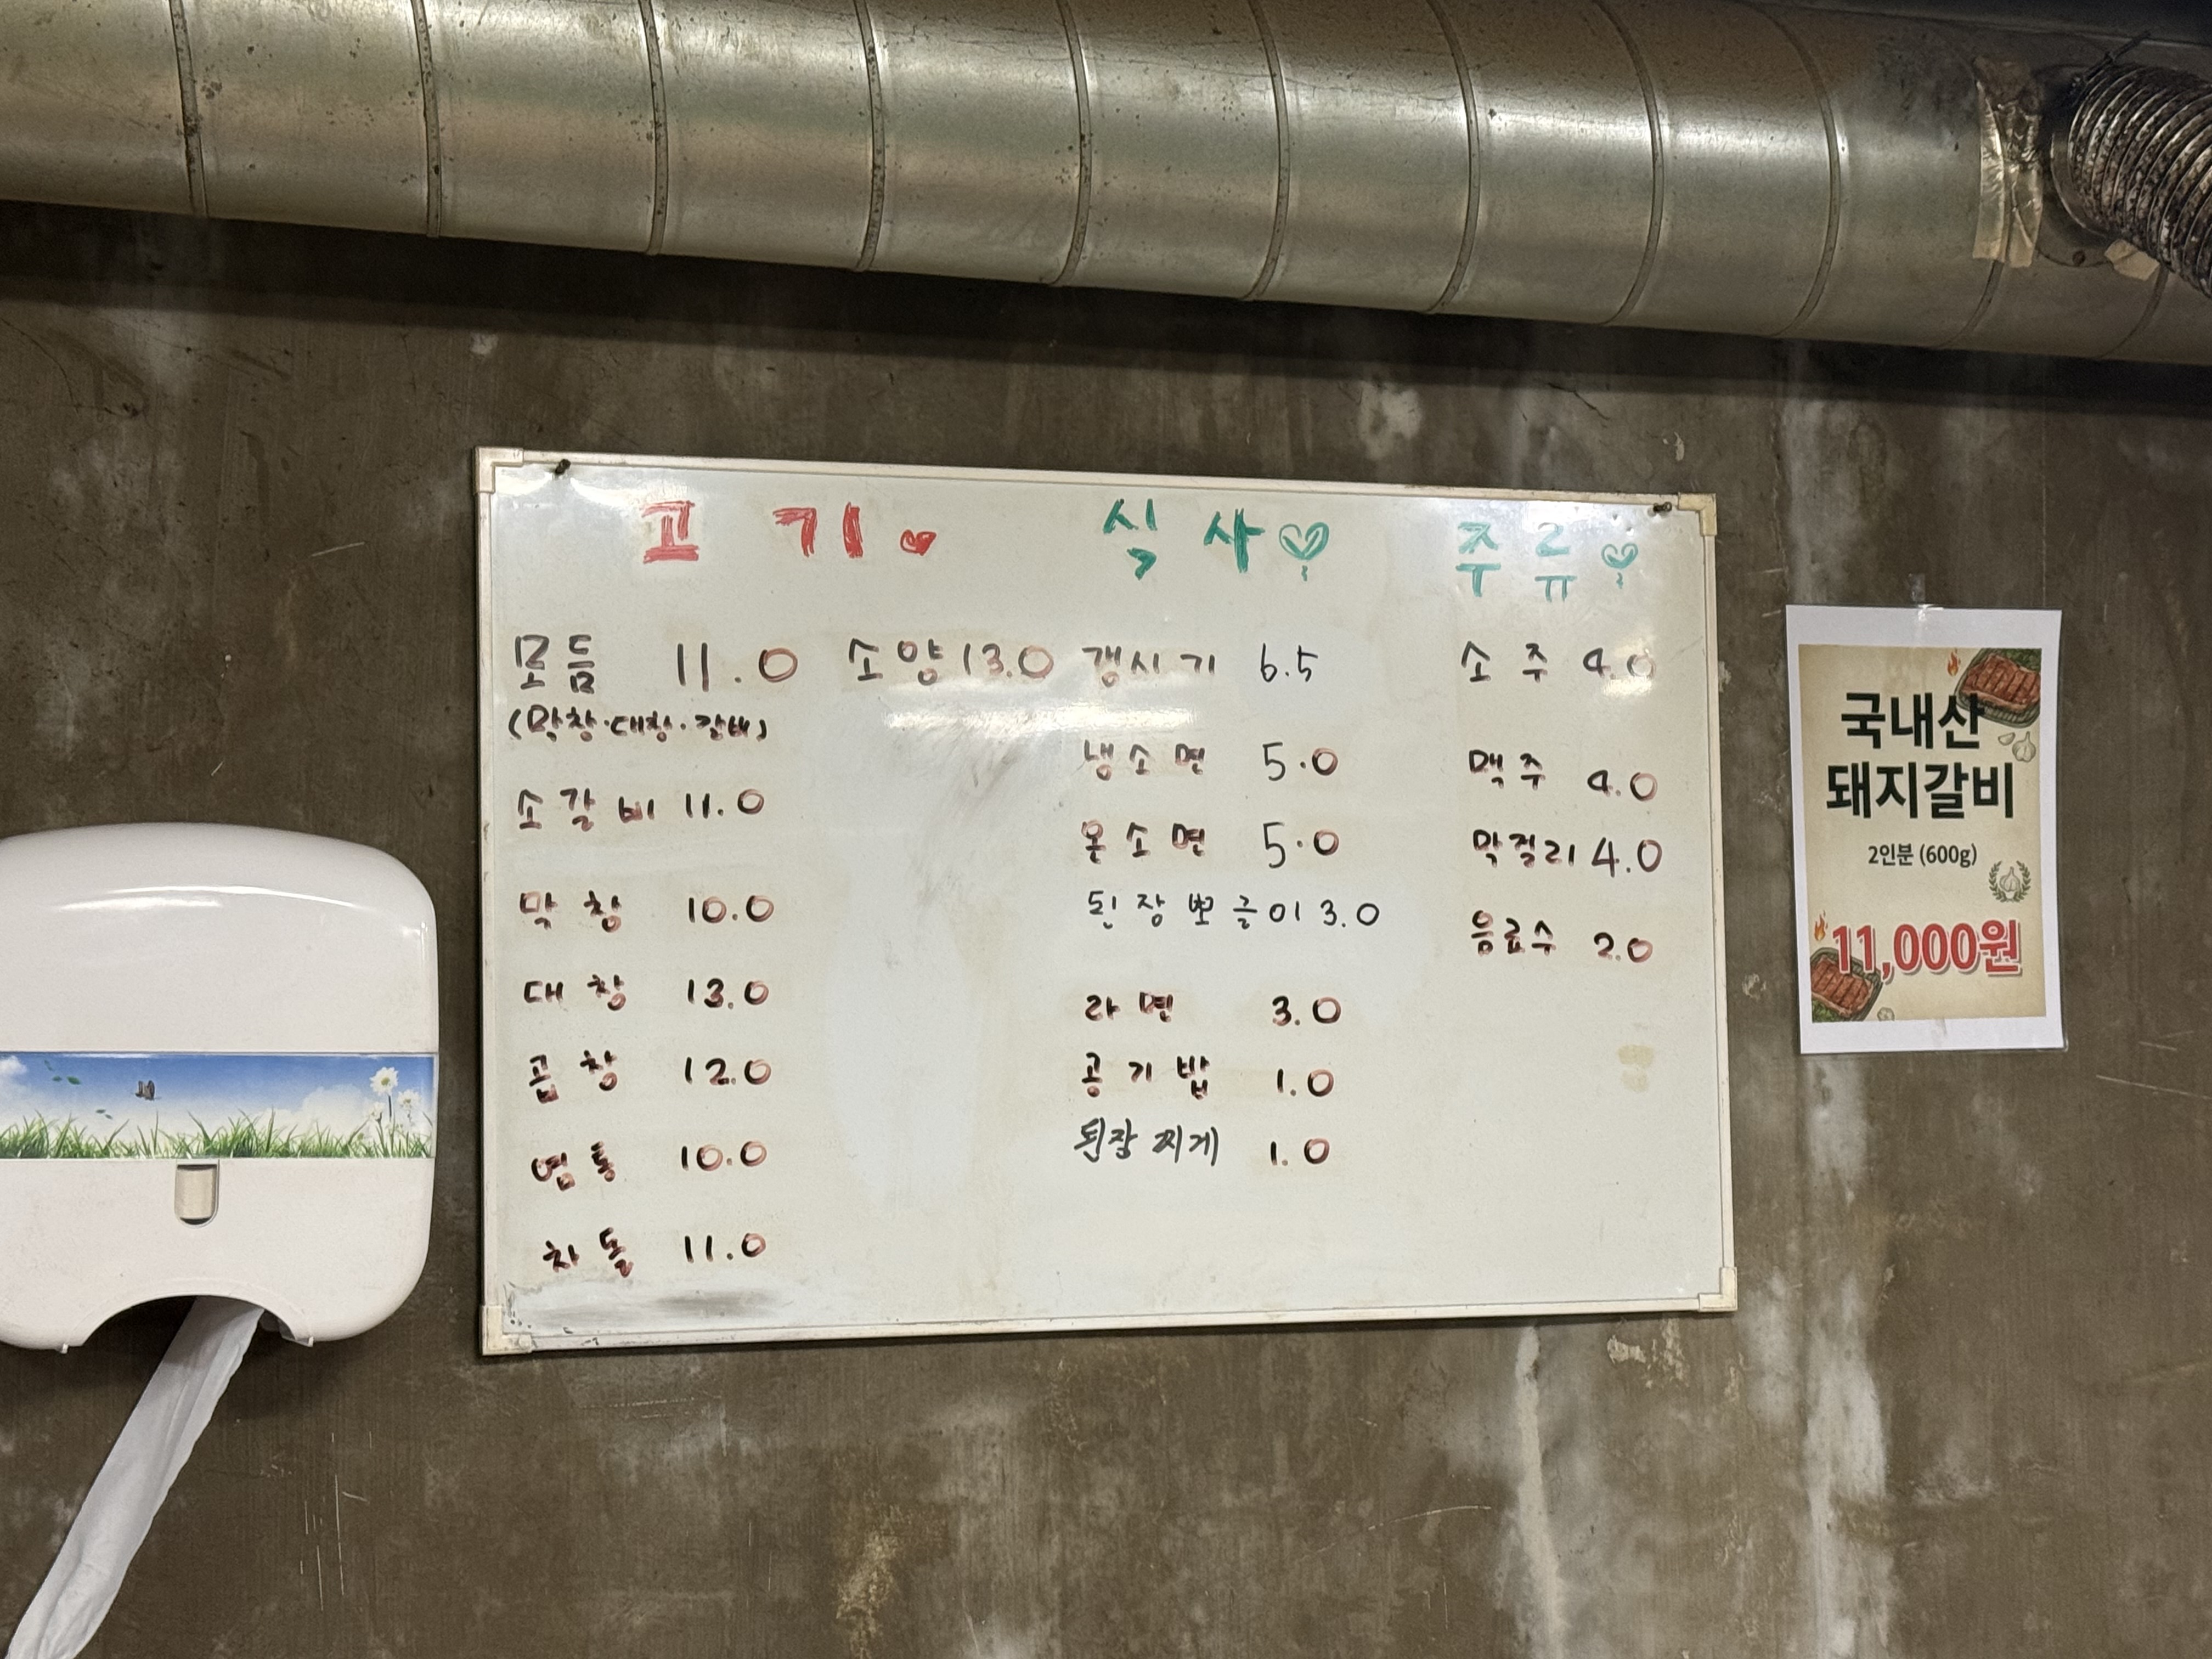 고기
모듬 11.0
(막창·대창·갈비)
소갈비 11.0
막창 10.0
대창 13.0
곱창 12.0
염통 10.0
차돌 11.0
소양 13.0
식사
갱시기 6.5
냉소면 5.0
온소면 5.0
된장뽀글이 3.0
라면 3.0
공기밥 1.0
된장찌게 1.0
주류
소주 4.0
맥주 4.0
막걸리 4.0
음료수 2.0
국내산
돼지갈비
2인분 (600g)
11,000원